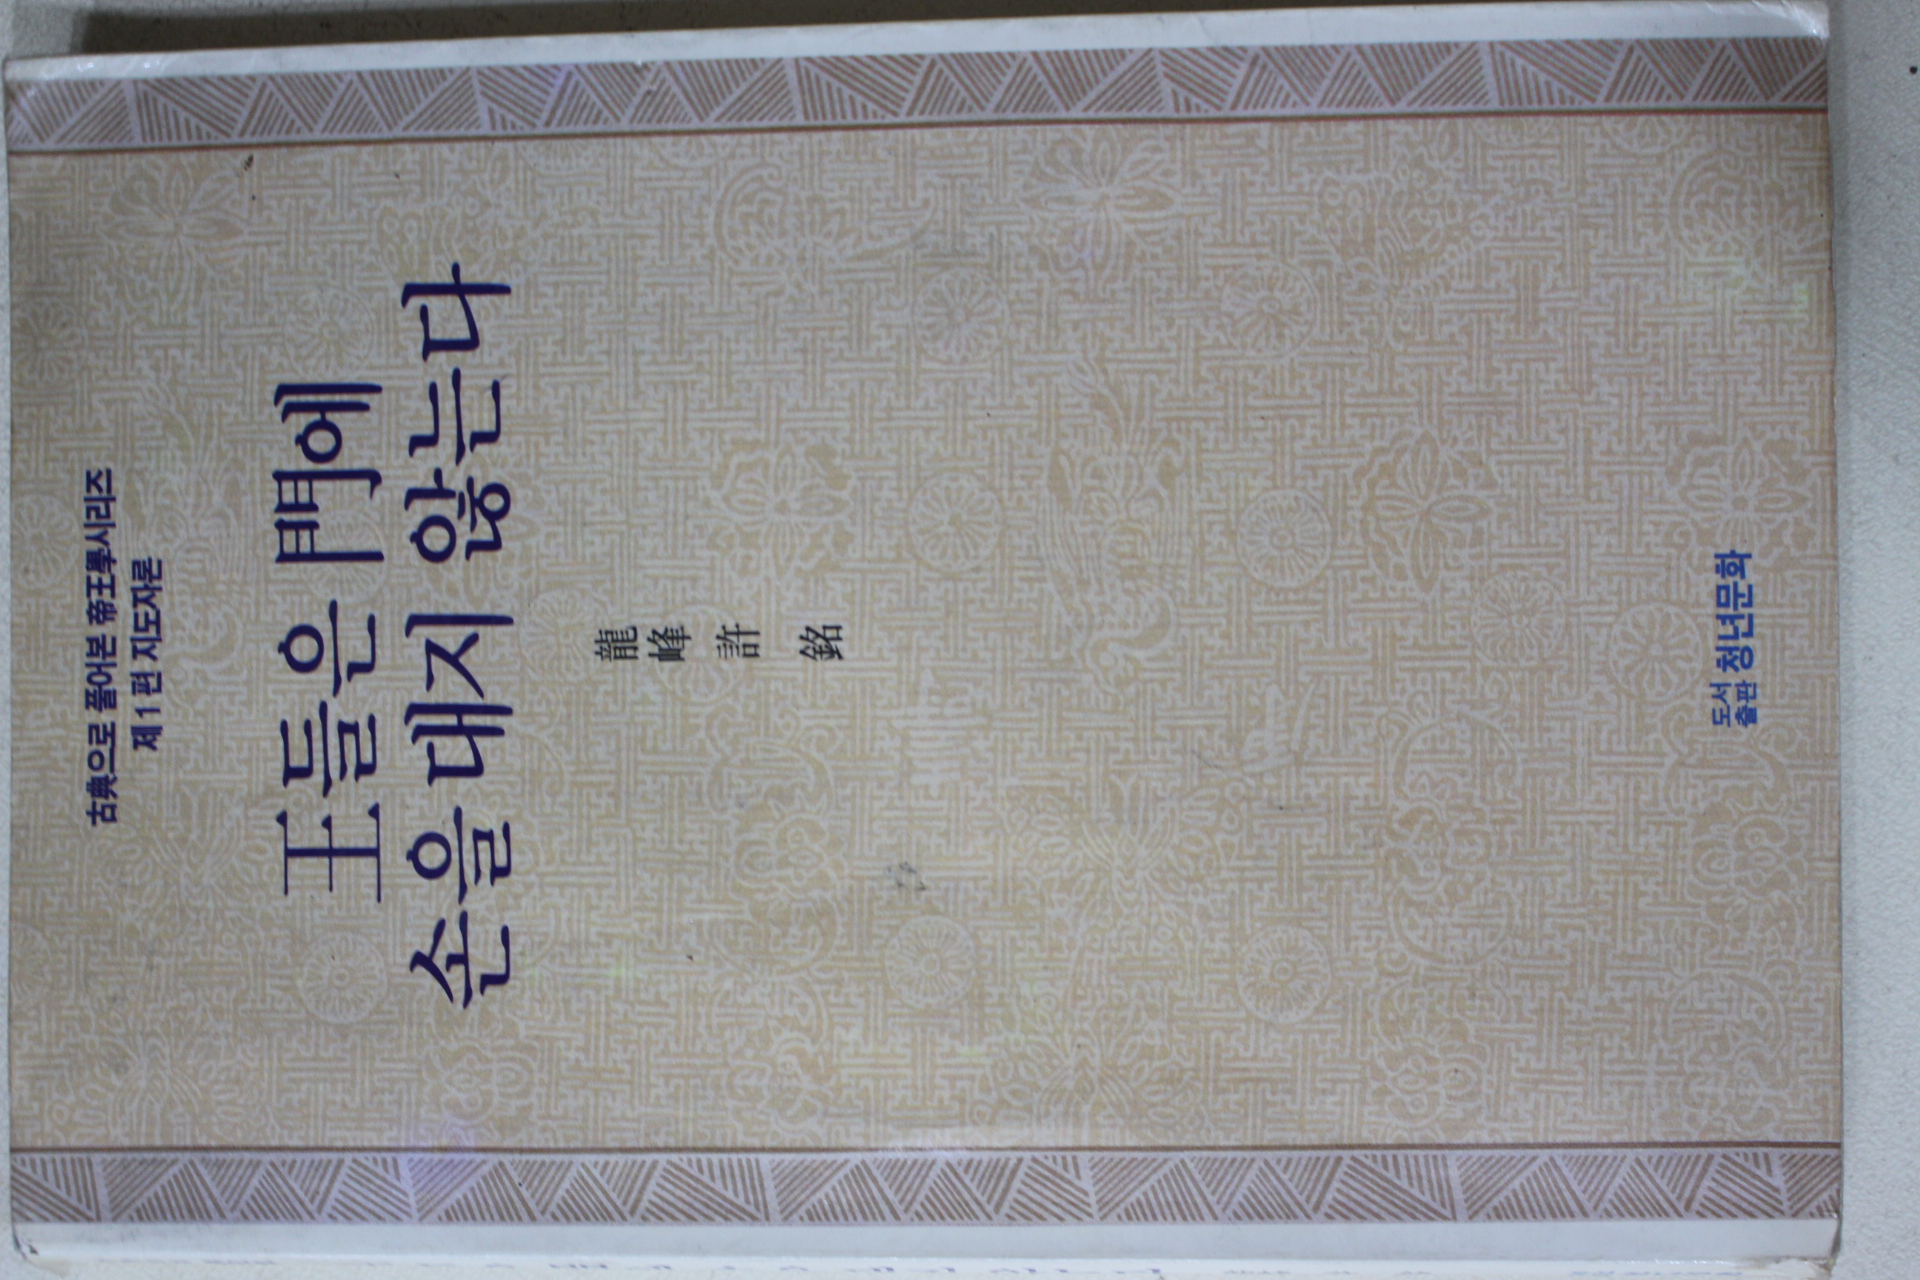 古典으로 풀어본 帝王學시리즈
제1편 지도자론
王들은 門에
손을 대지 않는다
龍
峰
許
銘
도서출판 청년문화